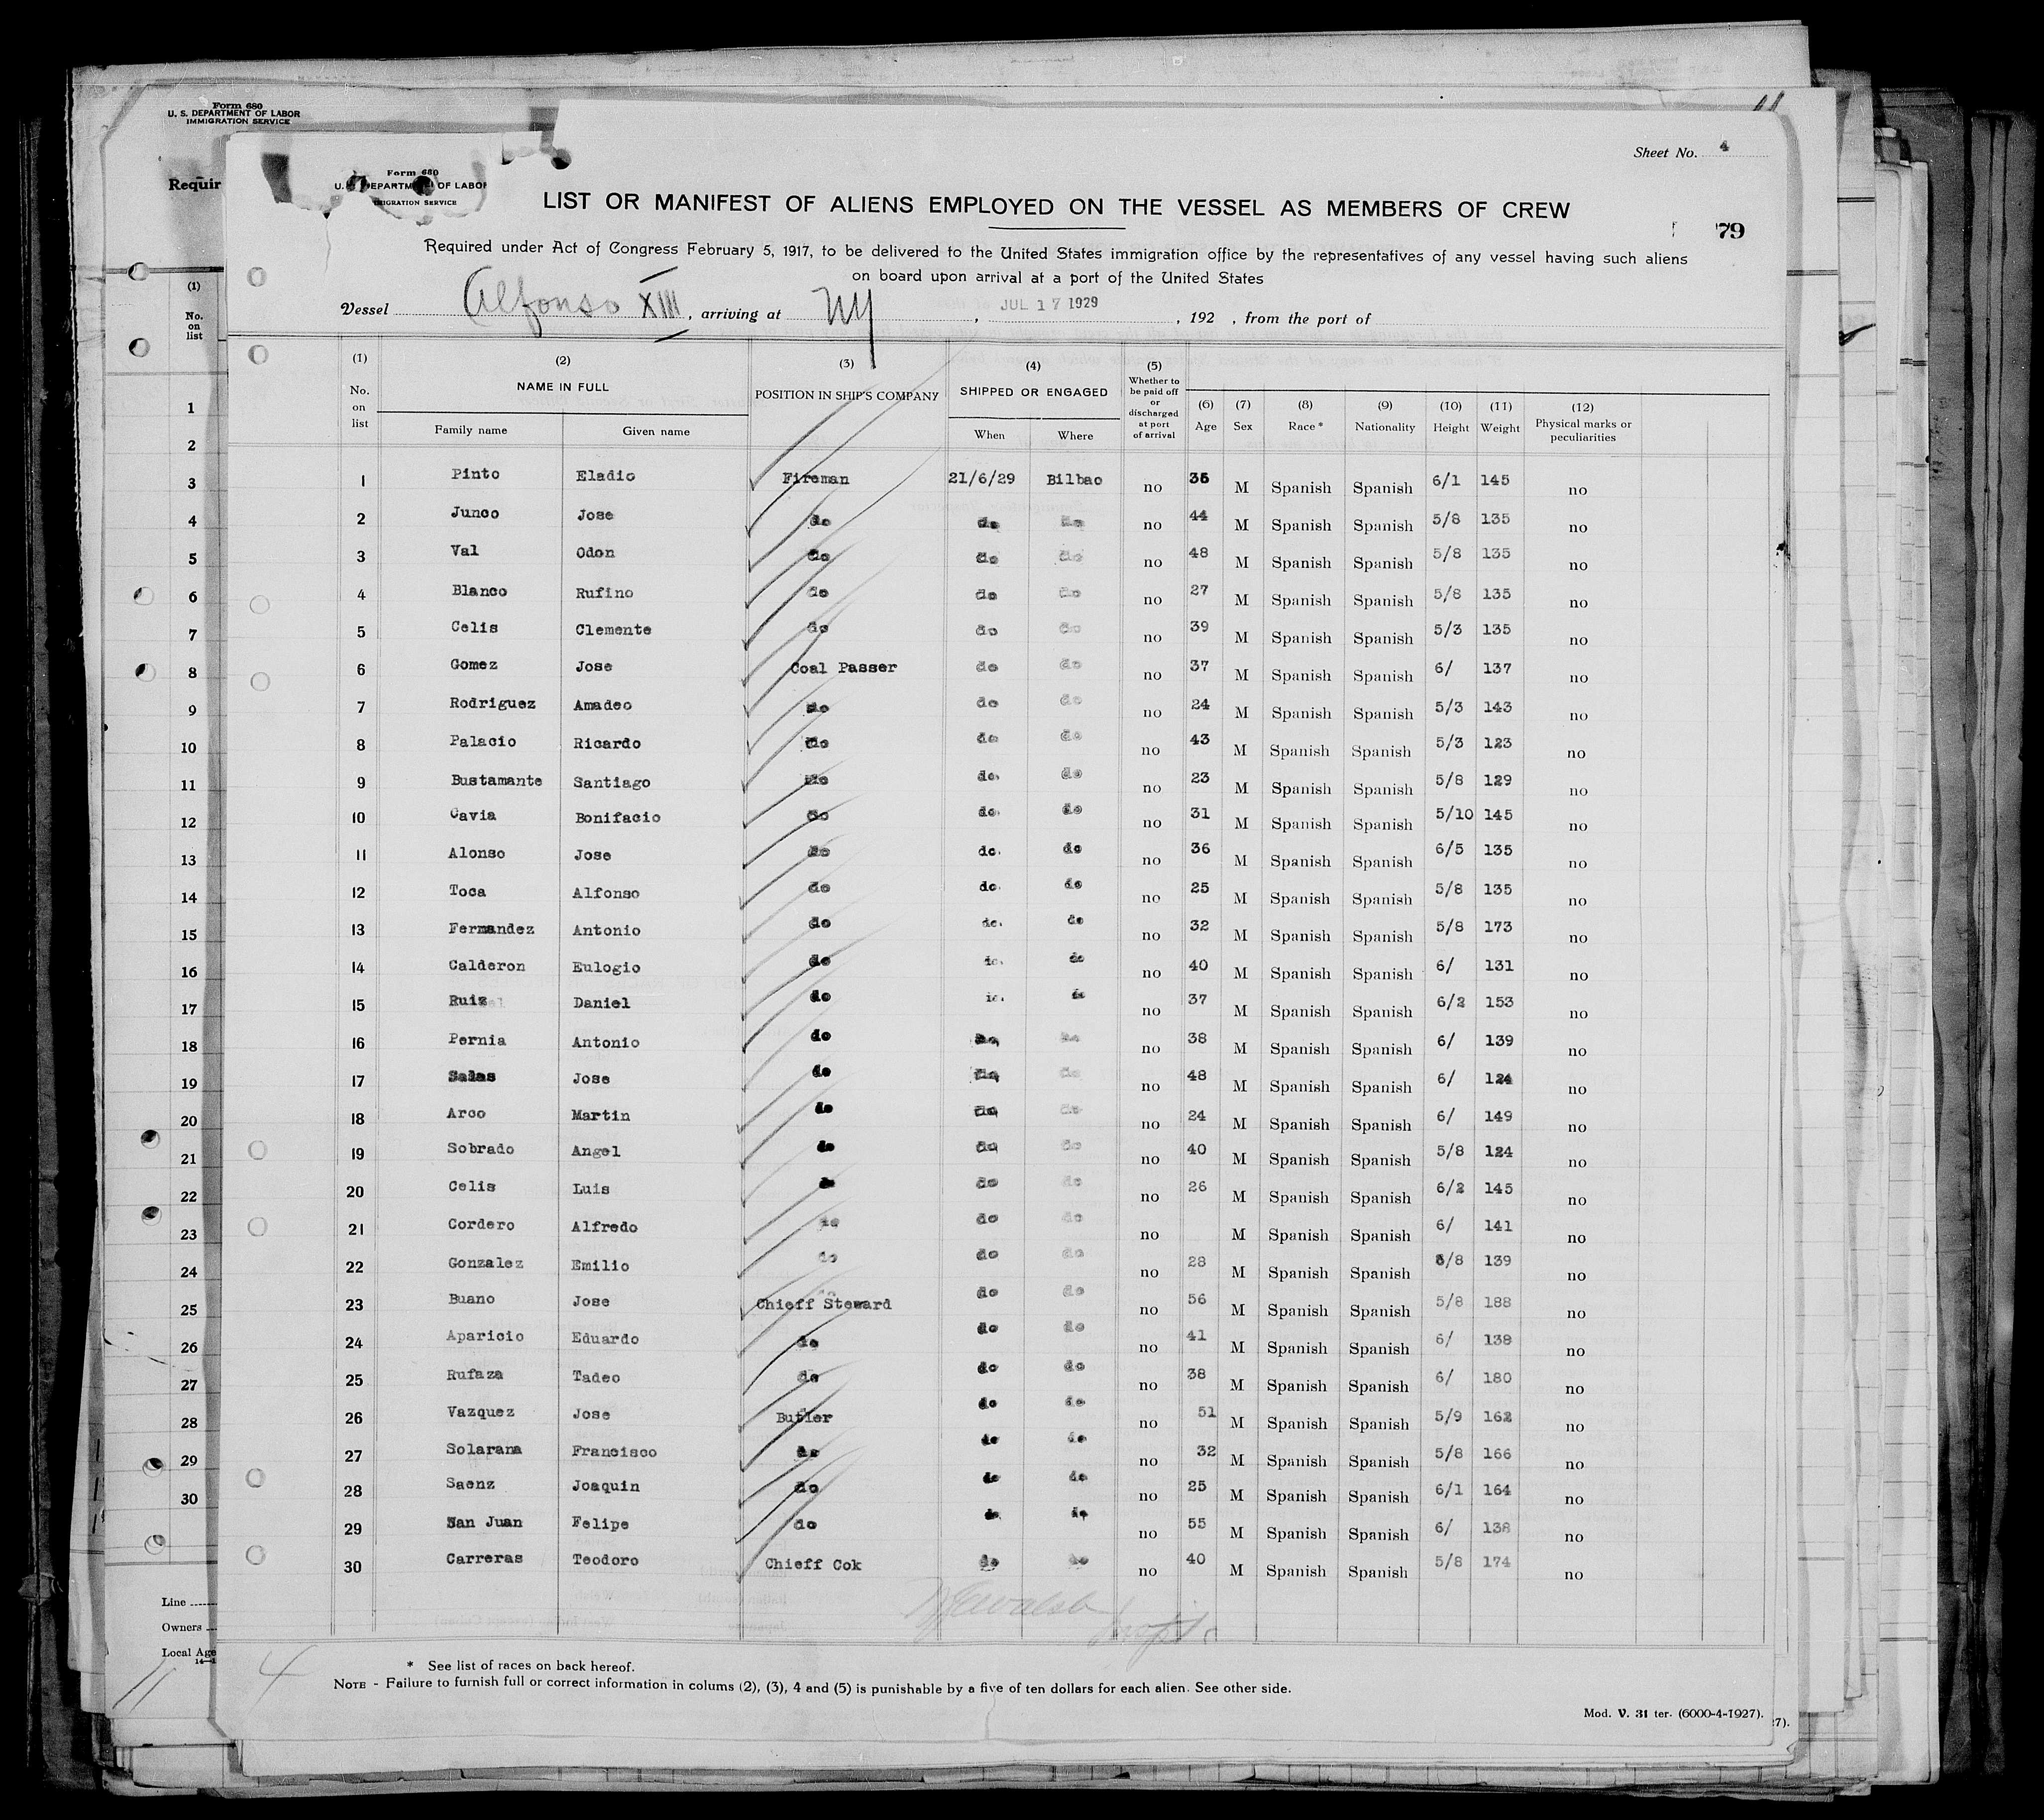 Form 680
U. S. DEPARTMENT OF LABOR
IMMIGRATION SERVICE
Requir
Form 680
U. DEPARTM OF LABOR
MIGRATION SERVICE
Sheet No. 4
LIST OR MANIFEST OF ALIENS EMPLOYED ON THE VESSEL AS MEMBERS OF CREW
79
Required under Act of Congress February 5, 1917, to be delivered to the United States immigration office by the representatives of any vessel having such aliens
on board upon arrival at a port of the United States
Vessel Alfonso XIII, arriving at NY, JUL 17 1929, 192 , from the port of
(1) No. on list (2) NAME IN FULL Family name Given name (3) POSITION IN SHIP'S COMPANY (4) SHIPPED OR ENGAGED When Where (5) Whether to be paid off or discharged at port of arrival (6) Age (7) Sex (8) Race * (9) Nationality (10) Height (11) Weight (12) Physical marks or peculiarities
1 Pinto Eladio Fireman 21/6/29 Bilbao no 35 M Spanish Spanish 6/1 145 no
2 Junco Jose do do do no 44 M Spanish Spanish 5/8 135 no
3 Val Odon do do do no 48 M Spanish Spanish 5/8 135 no
4 Blanco Rufino do do do no 27 M Spanish Spanish 5/8 135 no
5 Celis Clemente do do do no 39 M Spanish Spanish 5/3 135 no
6 Gomez Jose Coal Passer do do no 37 M Spanish Spanish 6/ 137 no
7 Rodriguez Amadeo do do do no 24 M Spanish Spanish 5/3 143 no
8 Palacio Ricardo do do do no 43 M Spanish Spanish 5/3 123 no
9 Bustamante Santiago do do do no 23 M Spanish Spanish 5/8 129 no
10 Gavia Bonifacio do do do no 31 M Spanish Spanish 5/10 145 no
11 Alonso Jose do do do no 36 M Spanish Spanish 6/5 135 no
12 Toca Alfonso do do do no 25 M Spanish Spanish 5/8 135 no
13 Fernandez Antonio do do do no 32 M Spanish Spanish 5/8 173 no
14 Calderon Eulogio do do do no 40 M Spanish Spanish 6/ 131 no
15 Ruiz Daniel do do do no 37 M Spanish Spanish 6/2 153 no
16 Pernia Antonio do do do no 38 M Spanish Spanish 6/ 139 no
17 Salas Jose do do do no 48 M Spanish Spanish 6/ 124 no
18 Arco Martin do do do no 24 M Spanish Spanish 6/ 149 no
19 Sobrado Angel do do do no 40 M Spanish Spanish 5/8 124 no
20 Celis Luis do do do no 26 M Spanish Spanish 6/2 145 no
21 Cordero Alfredo do do do no M Spanish Spanish 6/ 141 no
22 Gonzalez Emilio do do do no 28 M Spanish Spanish 6/8 139 no
23 Buano Jose Chieff Steward do do no 56 M Spanish Spanish 5/8 188 no
24 Aparicio Eduardo do do do no 41 M Spanish Spanish 6/ 138 no
25 Rufaza Tadeo do do do no 38 M Spanish Spanish 6/ 180 no
26 Vazquez Jose Butler do do no 51 M Spanish Spanish 5/9 162 no
27 Solarana Francisco do do do no 32 M Spanish Spanish 5/8 166 no
28 Saenz Joaquin do do do no 25 M Spanish Spanish 6/1 164 no
29 San Juan Felipe do do do no 55 M Spanish Spanish 6/ 138 no
30 Carreras Teodoro Chieff Cok do do no 40 M Spanish Spanish 5/8 174 no
4
* See list of races on back hereof.
NOTE - Failure to furnish full or correct information in colums (2), (3), 4 and (5) is punishable by a five of ten dollars for each alien. See other side.
Mod. V. 31 ter. (6000-4-1927).
27).
(1)
No.
on
list
1
2
3
4
5
6
7
8
9
10
11
12
13
14
15
16
17
18
19
20
21
22
23
24
25
26
27
28
29
30
Line
Owners
Local Age
11